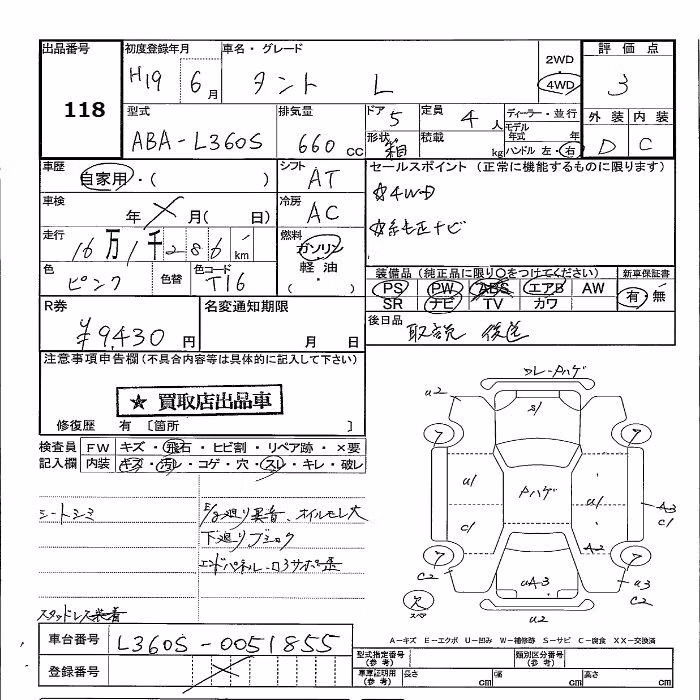 出品番号
118
初度登録年月
H19 6月
車名・グレード
タント L
2WD
4WD
評価点
3
型式
ABA-L360S
排気量
660 cc
ドア 5
形状 箱
定員 4人
積載 kg
ディーラー・並行
モデル年式 年
ハンドル 左・右
外装 内装
D C
車歴
自家用・( )
シフト AT
車検
年 × 月( 日)
冷房 AC
走行
16万1千286km
燃料
ガソリン
軽油
( )
色 ピンク 色替
色コード T16
セールスポイント (正常に機能するものに限ります)
☆4WD
☆純正ナビ
装備品 (純正品に限り〇をつけてください)
PS PW ABS エアB AW
SR ナビ TV カワ
新車保証書
有・無
R券
¥9,430円
名変通知期限
月 日
後日品 取説 後送
注意事項申告欄(不具合内容等は具体的に記入して下さい)
★ 買取店出品車
修復歴 有 〔箇所 〕
検査員記入欄
FW キズ・飛石・ヒビ割・リペア跡・×要
内装 キズ・汚レ・コゲ・穴・スレ・キレ・破レ
シートシミ
E/g廻り異音、オイルモレ大
下廻りブミロク
エンドパネル-ロ3サポ歪
スタッドレス装着
フレーPハゲ
u2
S1
7
7
u1
Pハゲ
u1
A3
C1
C1
A2
7
7
C2
uA3
u3
C2
u2
A-キズ E-エクボ U-凹み W-補修跡 S-サビ C-腐食 XX-交換済
車台番号 L360S-0051855
登録番号
型式指定番号(参考)
類別区分番号(参考)
車庫証明用(参考) 長さ cm 幅 cm 高さ cm